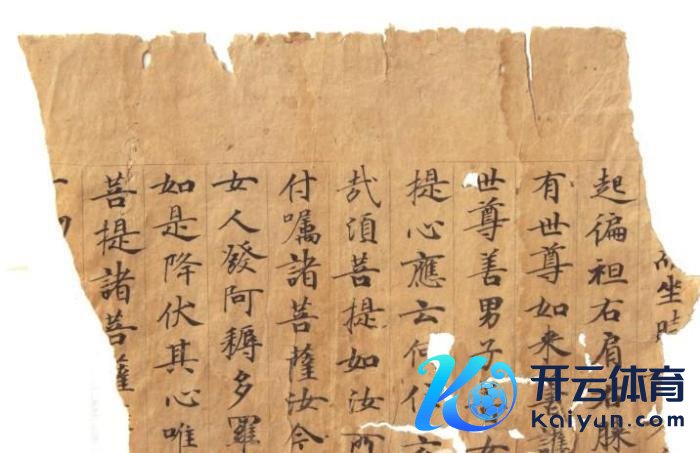 坐時
起徧袒右肩膝
有世尊如来善護
世尊善男子善女
提心應云何住云
哉須菩提如汝所
付囑諸菩薩汝今
女人發阿耨多羅
如是降伏其心唯
菩提諸菩薩
开云体育
Kaiyun.com